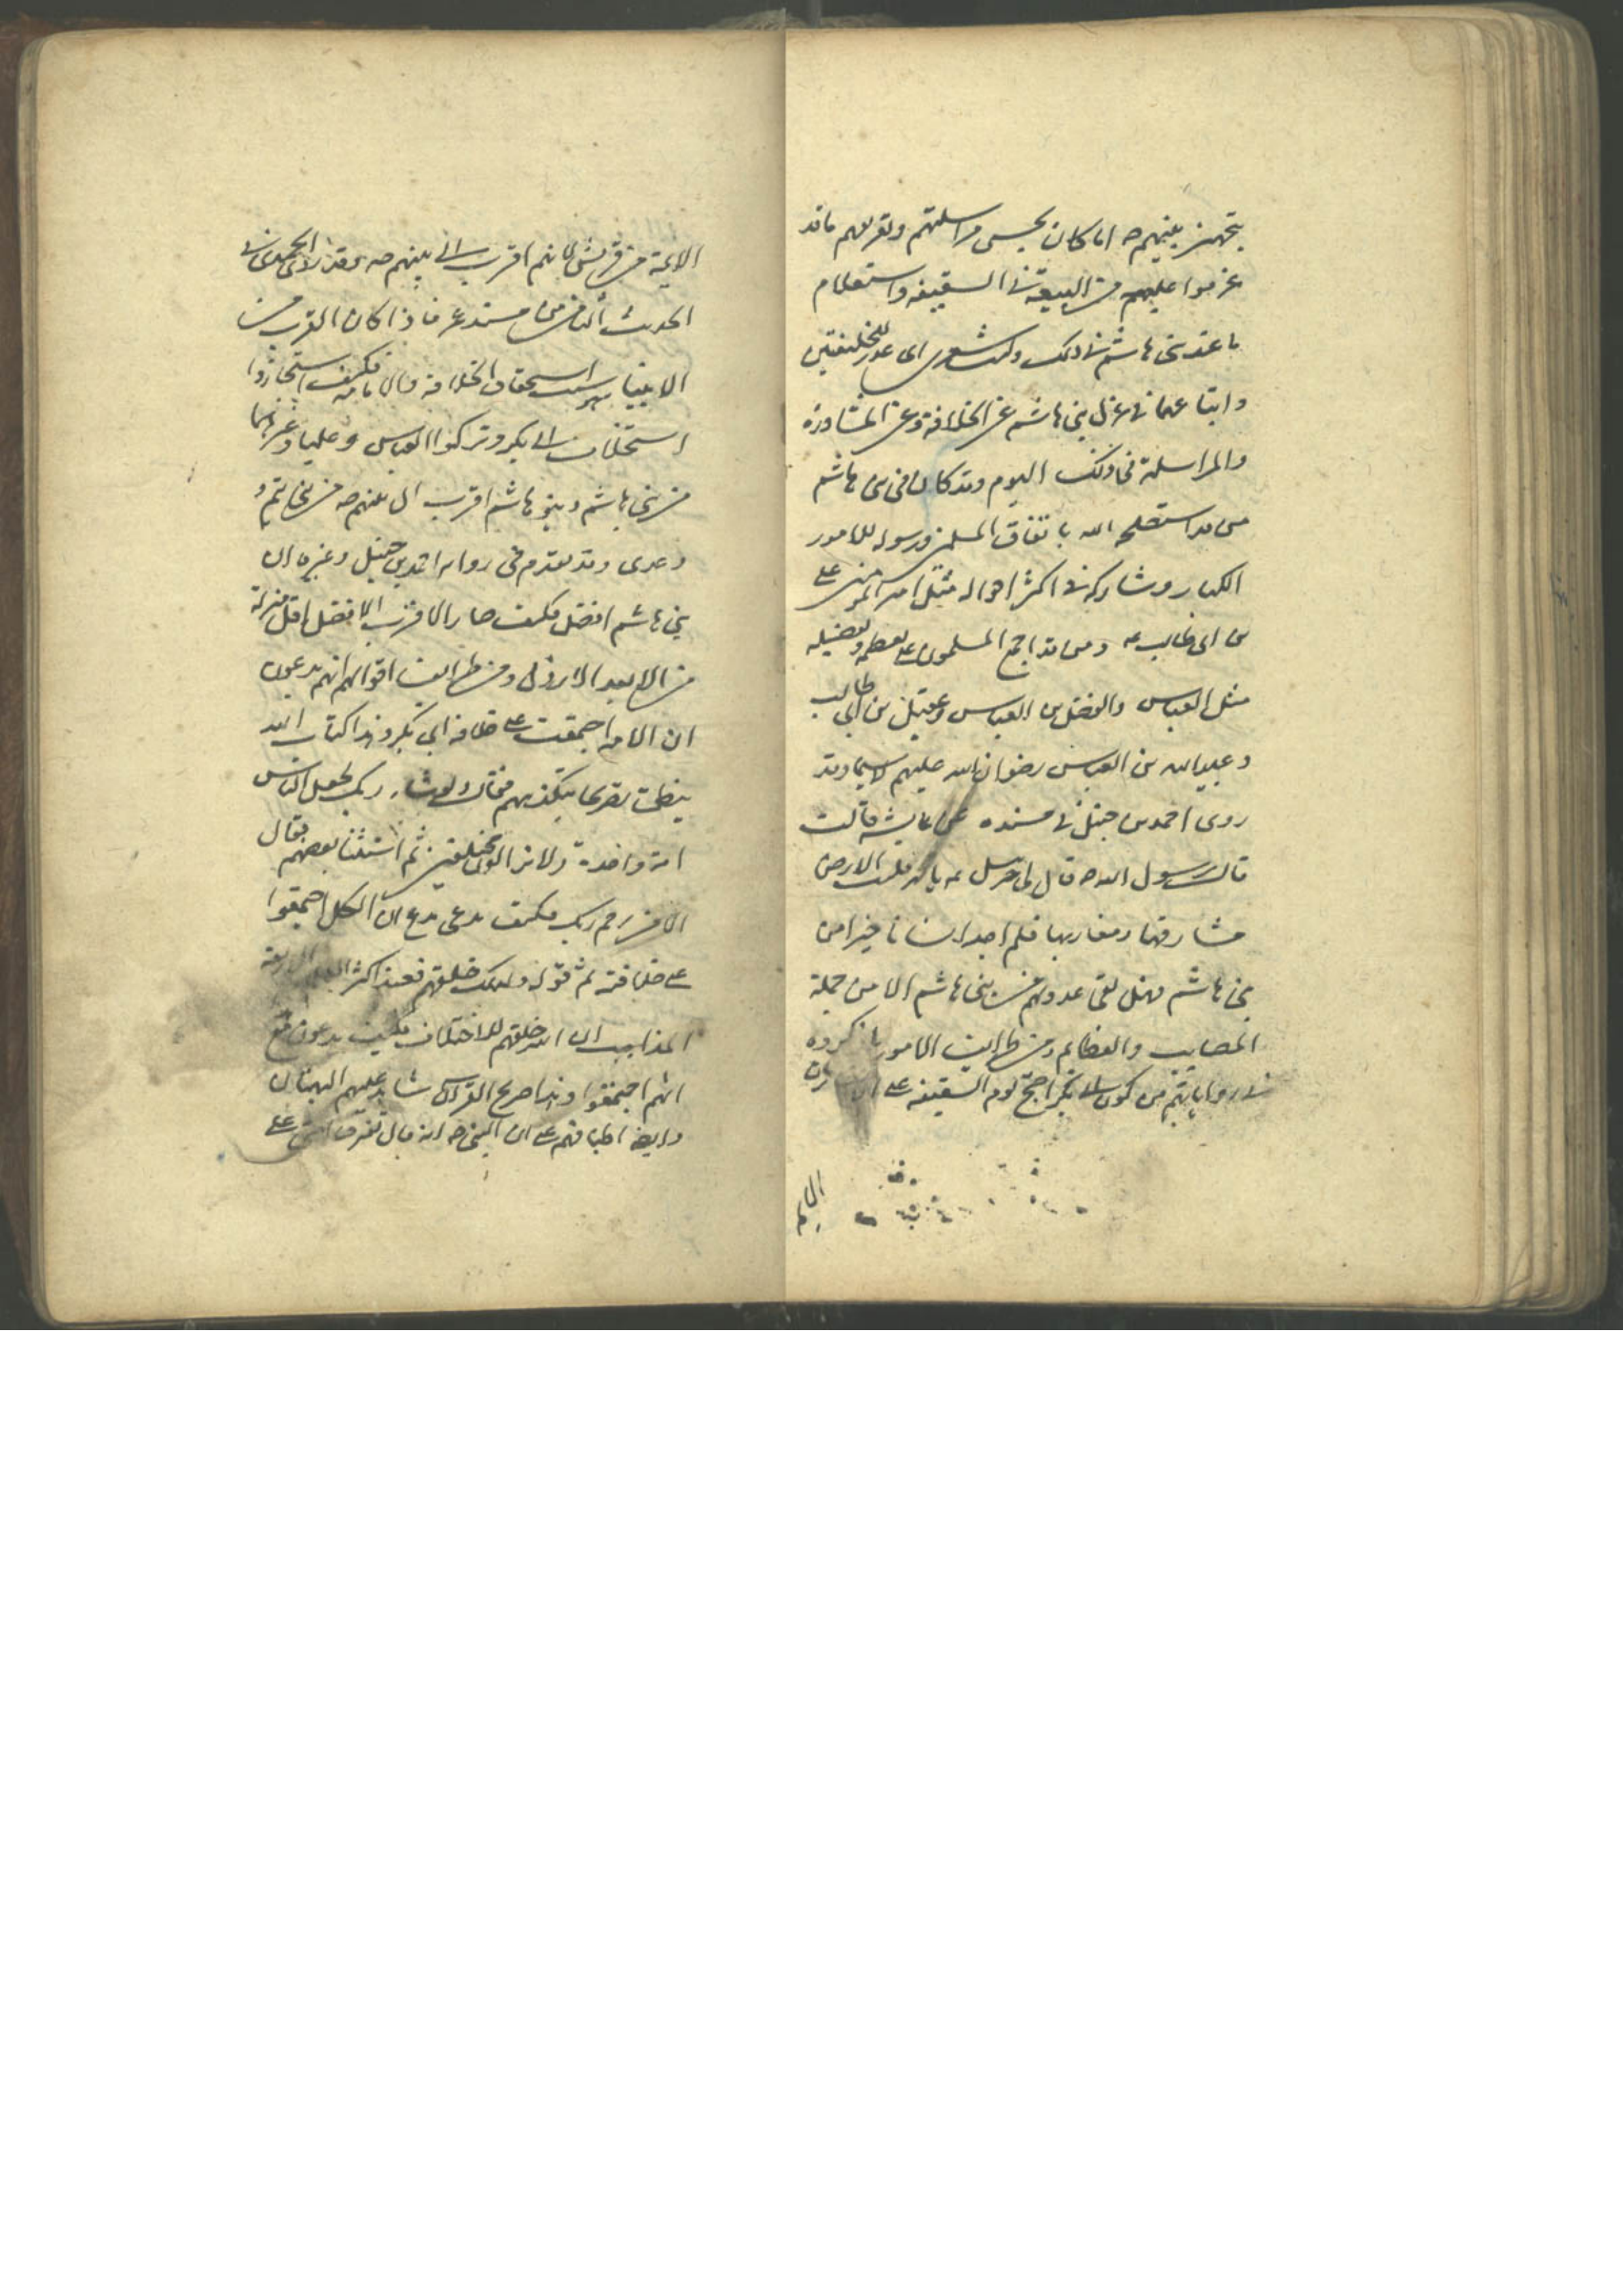 بتجهيز بنيهم صه اما كان يحسن مراسلتهم وتعريفهم ما قد
عزموا عليهم من البيعة في السقيفه واستعلام
ما عند بني هاشم في ذلك وليت شعري اى عذر للخليفتين
واتباعهما في عزل بني هاشم عن الخلافة وعن المشاورة
والمراسلة في ذلك اليوم وقد كان في بني هاشم
من قد استصلحه الله باتفاق المسلمين ورسوله للامور
الكبار وشاركه في اكثر احواله مثل امير المومنين على
بن ابى طالب عه ومن قد اجمع المسلمون على تعظيمه وتفضيله
مثل العباس والفضل بن العباس وعقيل بن ابي طالب
وعبدالله بن العباس رضوان الله عليهم لاسيما وقد
روى احمد بن حنبل في مسنده عن عايشه قالت
قالت رسول الله صه قال لى جبرئيل عه يا محمد قلبت الارض
مشارقها ومغاربها فلم اجد انسانا خيرا من
بني هاشم فهل لقى عدولهم من بني هاشم الا من جملة
المصايب والعظايم ومن طرايف الامور ما ذكروه
في رواياتهم من كون ابى بكر احتج يوم السقيفه على الانصار بان
الايمة
الايمة من قريش لانهم اقرب الى بنيهم صه وقد روى الحميدى في
الحديث الثامن من مسند عمر فاذا كان القرب من
الانبياء سبب استحقاق الخلافة والامامه فكيف استجازوا
استخلاف ابى بكر وتركوا العباس وعليا وغيرهما
من بني هاشم وبنو هاشم اقرب الى بنيهم صه من بني تيم و
وعدى وقد تقدم في روايه احمد بن حنبل وغيره ان
بني هاشم افضل فكيف صار الاقرب الافضل اقل منزلة
من الابعد الارذل ومن طرايف اقوالهم انهم يدعون
ان الامه اجمعت على خلافه ابي بكر وهذا كتاب الله
ينطق تصريحا بتكذيبهم فقال ولو شاء ربك لجعل الناس
امة واحدة ولا يزالون مختلفين ثم استثنا بعضهم فقال
الا من رحم ربك فكيف يدعى مدع ان الكل اجمعوا
على خلافته ثم قوله ولذلك خلقهم فعند اكثر الاربعة
المذاهب ان الله خلقهم للاختلاف فكيف يدعون مع
انهم اجتمعوا وهذا صريح القران شاهد عليهم البهتان
وايضا اطباقهم على ان النبي صه انه قال تفترق امتى على